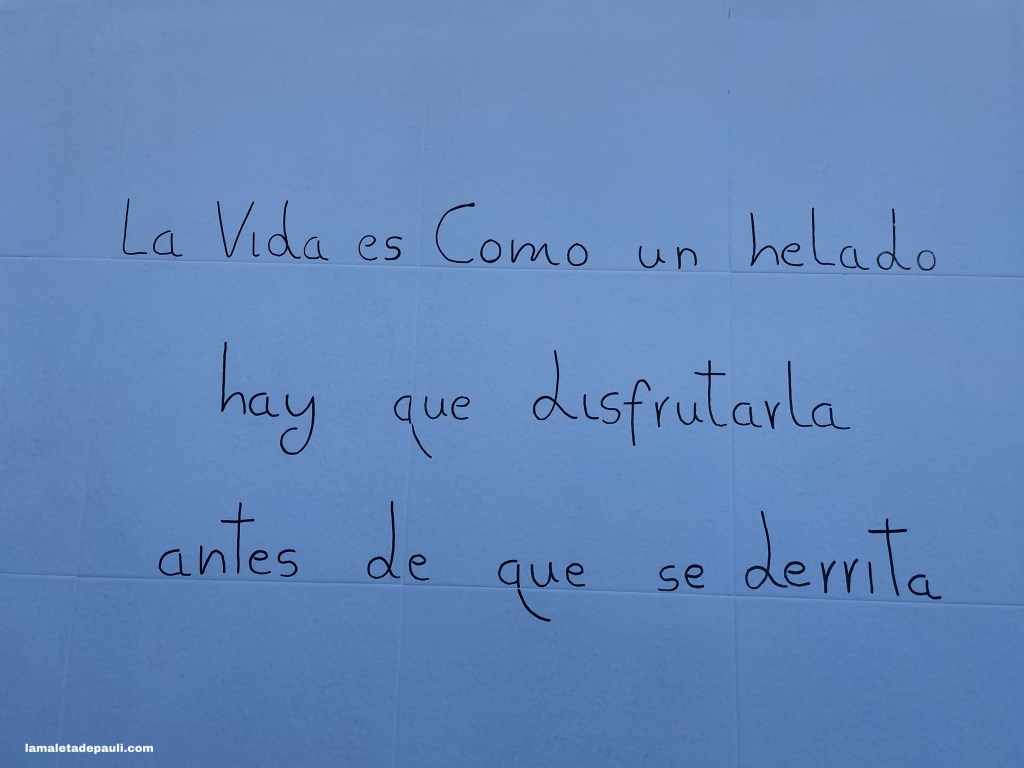 La Vida es Como un helado
hay que disfrutarla
antes de que se derrita
lamaletadepauli.com